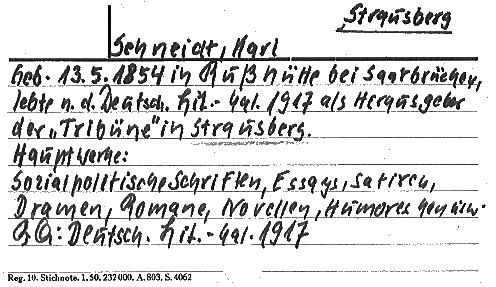 Strausberg
Schneidt, Karl
Geb. 13.5.1854 in Rußhütte bei Saarbrücken,
lebte n. d. Deutsch. Lit.-Kal. 1917 als Herausgeber
der „Tribüne" in Strausberg.
Hauptwerke:
Sozialpolitische Schriften, Essays, Satiren,
Dramen, Romane, Novellen, Humoresken usw.
BQ: Deutsch. Lit.-Kal. 1917
Reg. 10. Stichnote. 1. 50. 232000. A. 803. S. 4062